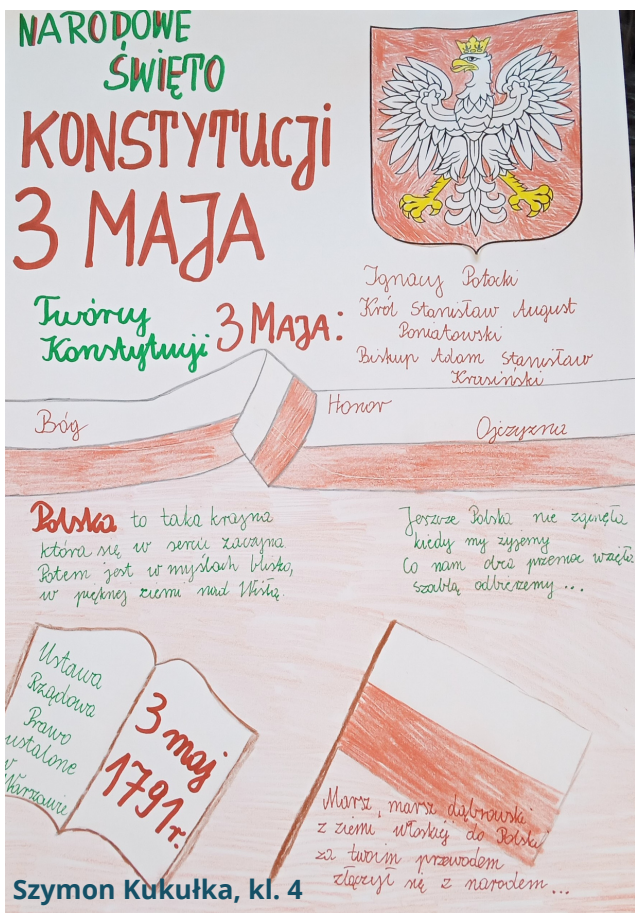 NARODOWE
ŚWIĘTO
KONSTYTUCJI
3 MAJA
Twórcy
Konstytucji
3 MAJA:
Ignacy Potocki
Król Stanisław August
Poniatowski
Biskup Adam Stanisław
Krasiński
Bóg
Honor
Ojczyzna
Polska to taka kraina
która się w sercu zaczyna
Potem jest w myślach blisko,
w pięknej ziemi nad Wisłą.
Jeszcze Polska nie zginęła
kiedy my żyjemy
Co nam obca przemoc wzięła
szablą odbierzemy...
Ustawa
Rządowa
Prawo
ustalone
w
Warszawie
3 maj
1791 r.
Marsz, marsz dąbrowski
z ziemi włoskiej do Polski
za twoim przewodem
złączył się z narodem...
Szymon Kukułka, kl. 4